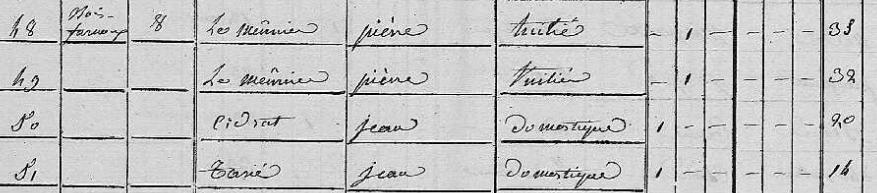 48 Bois- farnoux 8 Le meûnier pière tuilié - 1 - - - - 33
49 Le meûnier pière tuilié - 1 - - - - 32
50 Cidrat jean domestique 1 - - - - - 20
51 Tarié jean domestique 1 - - - - - 14